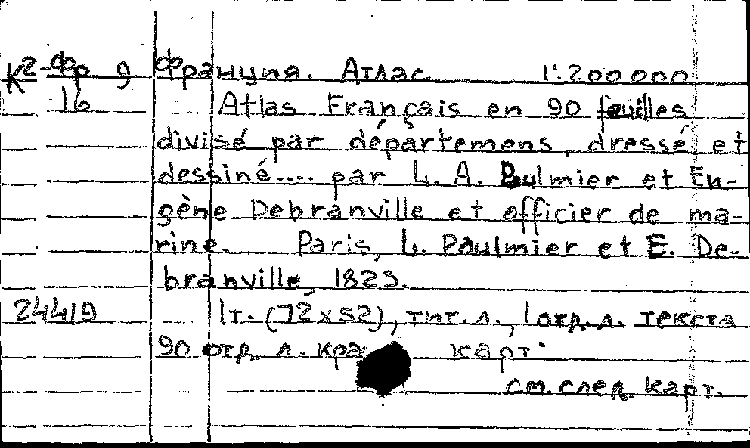 К 2-Фр 9 Франция. Атлас 1:200000
16 Atlas Français en 90 feuilles
divisé par départemens, dressé et
dessiné.... par L. A. Paulmier et Eu-
gène Debranville et officier de ma-
rine. Paris, L. Paulmier et E. De-
branville, 1823.
24419 1т. (72x52), тит. л., 1 отд. л. текста
90 отд. л. карт
см. след. карт.